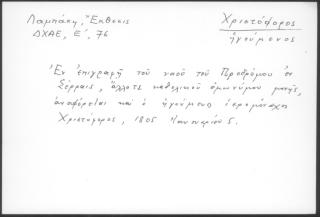 Λαμπάκη, Ἔκθεσις
ΔΧΑΕ, Ε΄, 76
Χριστόφορος
ἡγούμενος
Ἐν ἐπιγραφῇ τοῦ ναοῦ τοῦ Προδρόμου ἐν
Σέρραις, ἄλλοτε καθολικοῦ ὁμωνύμου μονῆς,
ἀναφέρεται καὶ ὁ ἡγούμενος ἱερομόναχος
Χριστόφορος, 1805 Ἰανουαρίου 5.